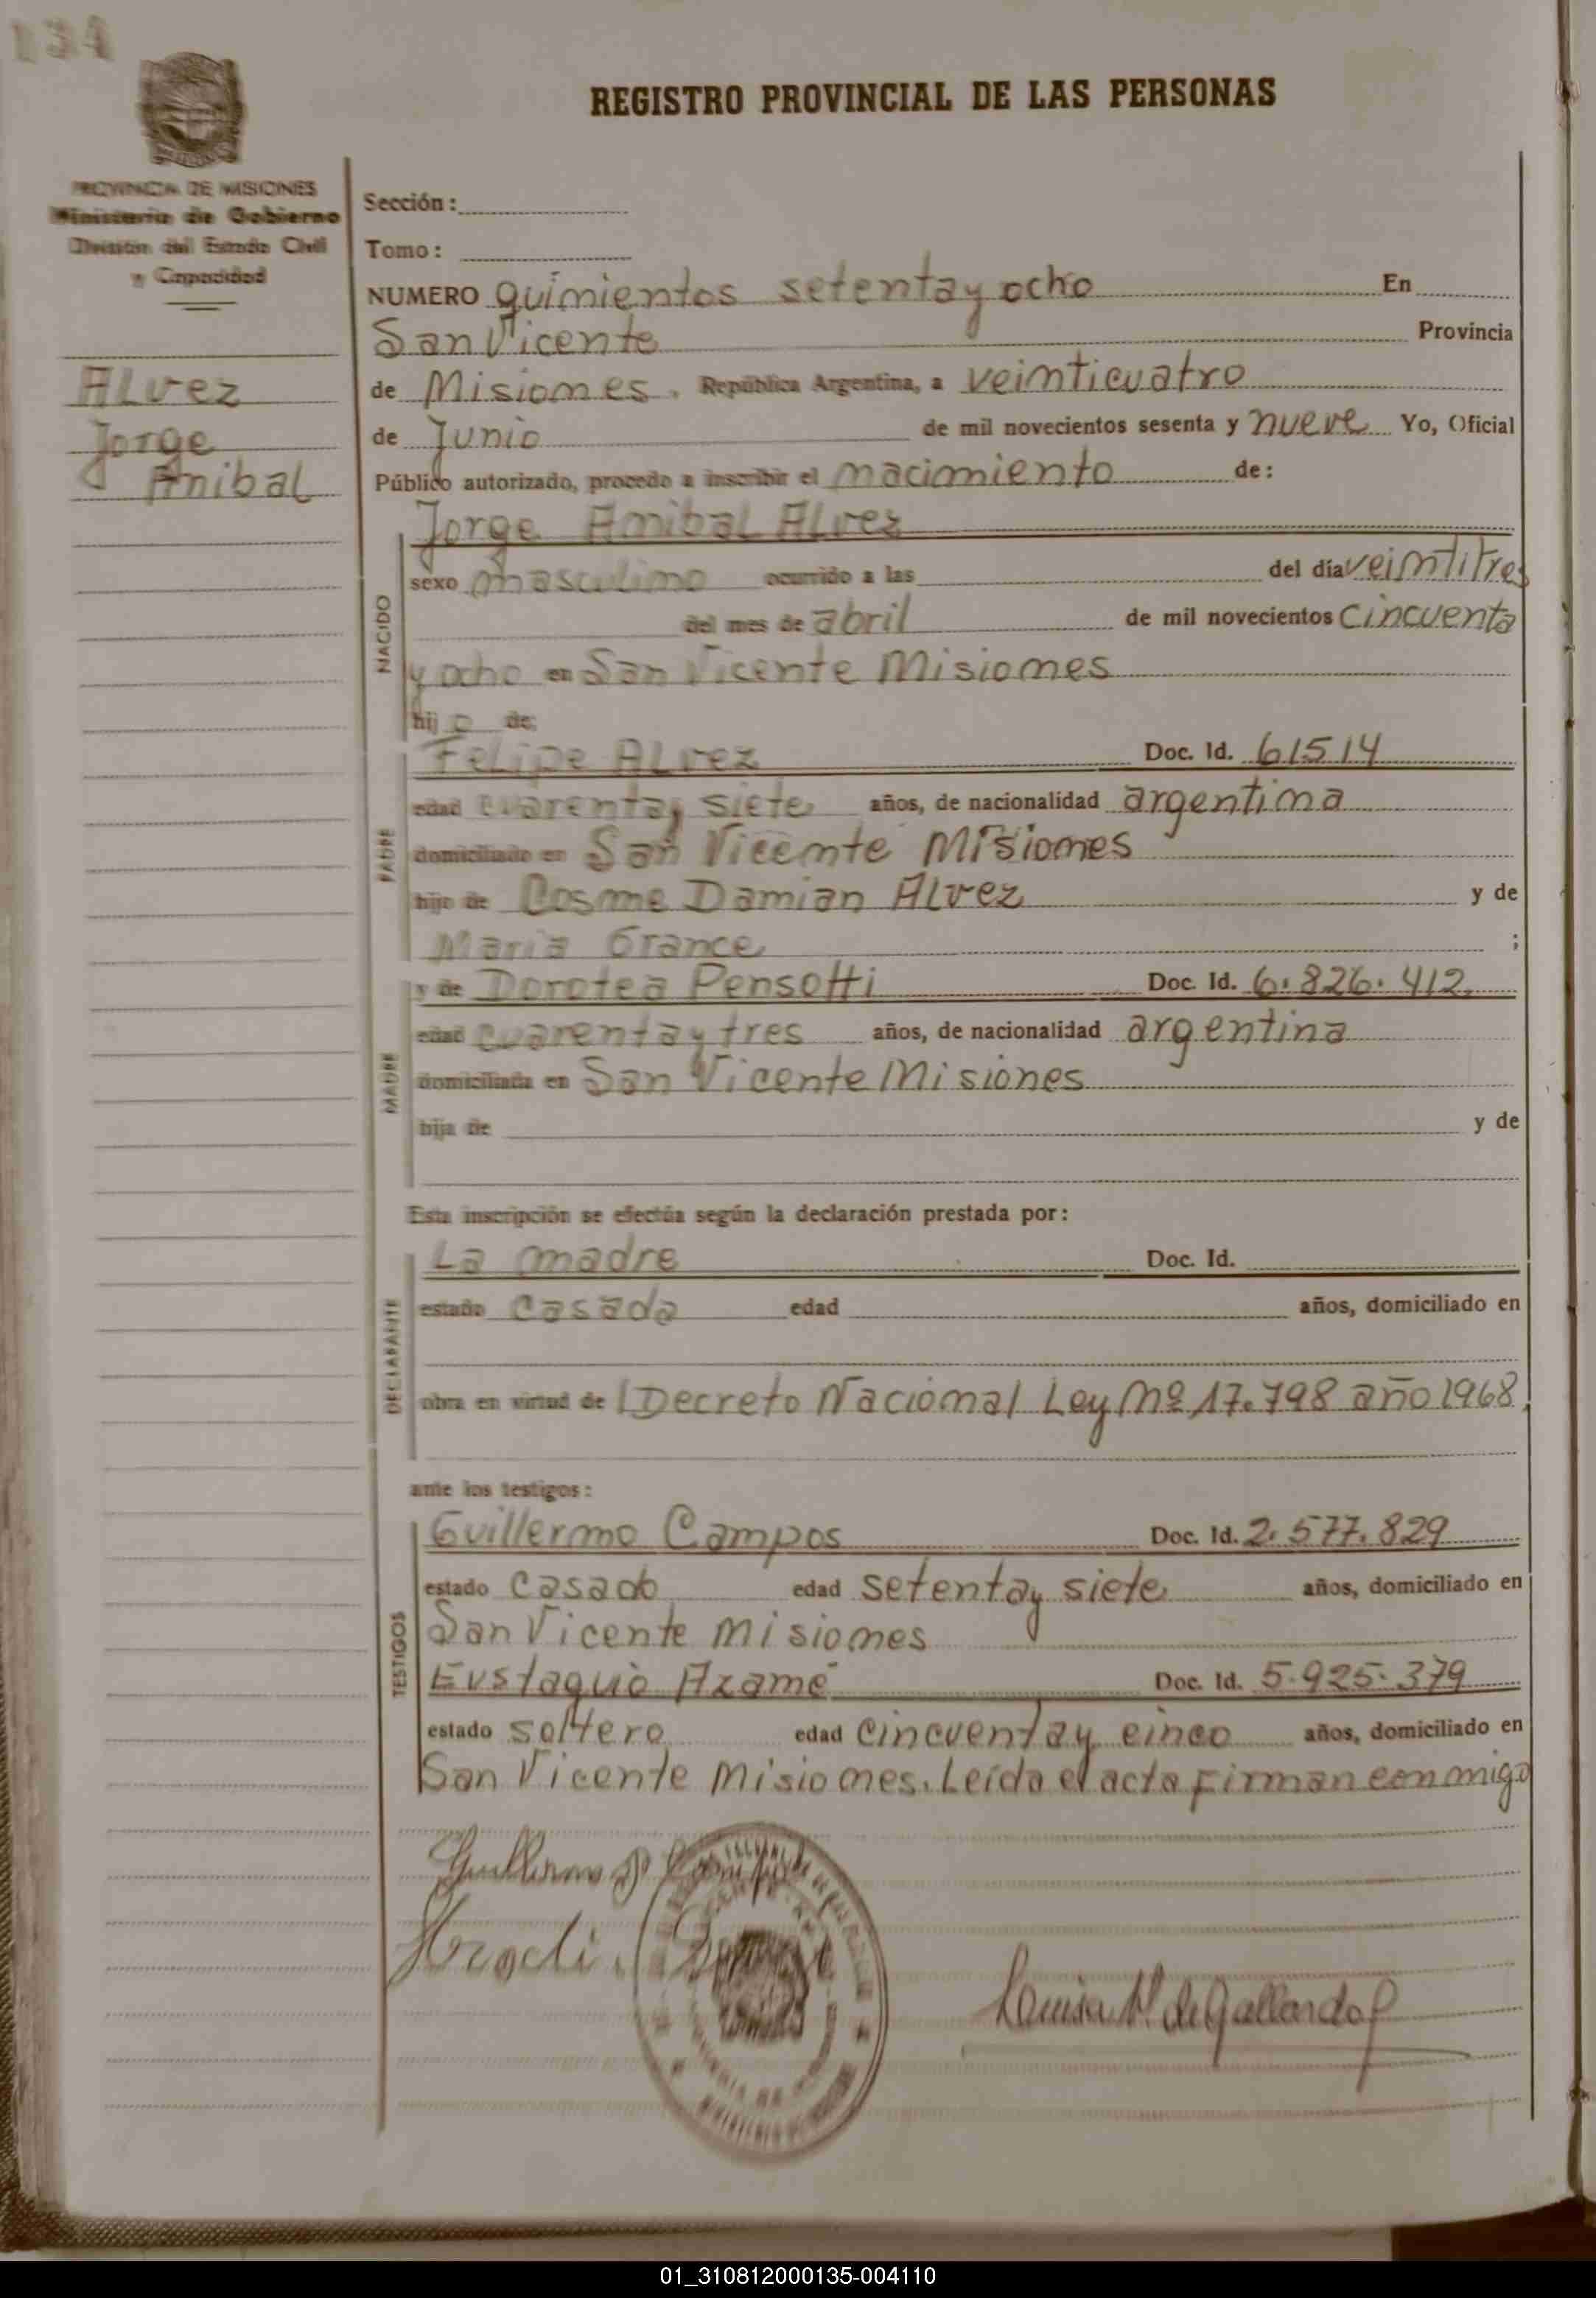 134
REGISTRO PROVINCIAL DE LAS PERSONAS
PROVINCIA DE MISIONES
Ministerio de Gobierno
División del Estado Civil
y Capacidad
ALvez
Jorge
Anibal
Sección:
Tomo:
NUMERO quimientos setenta y ocho En
San Vicente Provincia
de Misiomes, República Argentina, a veimticuatro
de Junio de mil novecientos sesenta y nueve Yo, Oficial
Público autorizado, procedo a inscribir el macimiento de:
Jorge Amibal ALvez
NACIDO
sexo masculimo ocurrido a las del día veimtitres
del mes de abril de mil novecientos cincuenta
y ocho en San Vicente Misiomes
hijo de:
PADRE
Felipe ALvez Doc. Id. 61514
edad cuarenta y siete años, de nacionalidad argentima
domiciliado en San Vicemte Misiomes
hijo de Cosme Damian ALvez y de
Maria Grance ;
MADRE
y de Dorotea Pensotti Doc. Id. 6.826.412
edad cuarenta y tres años, de nacionalidad argentina
domiciliada en San Vicente Misiones
hija de y de
Esta inscripción se efectúa según la declaración prestada por:
DECLARANTE
La madre Doc. Id.
estado casada edad años, domiciliado en
obra en virtud de Decreto Naciomal Ley Mº 17.798 año 1968
ante los testigos:
TESTIGOS
Guillermo Campos Doc. Id. 2.577.829
estado casado edad setenta y siete años, domiciliado en
San Vicente Misiomes
Eustaquio Azame Doc. Id. 5.925.379
estado soltero edad cincuenta y cinco años, domiciliado en
San Vicente Misiomes. Leida el acta firman conmigo
de Gallardo
01_310812000135-004110